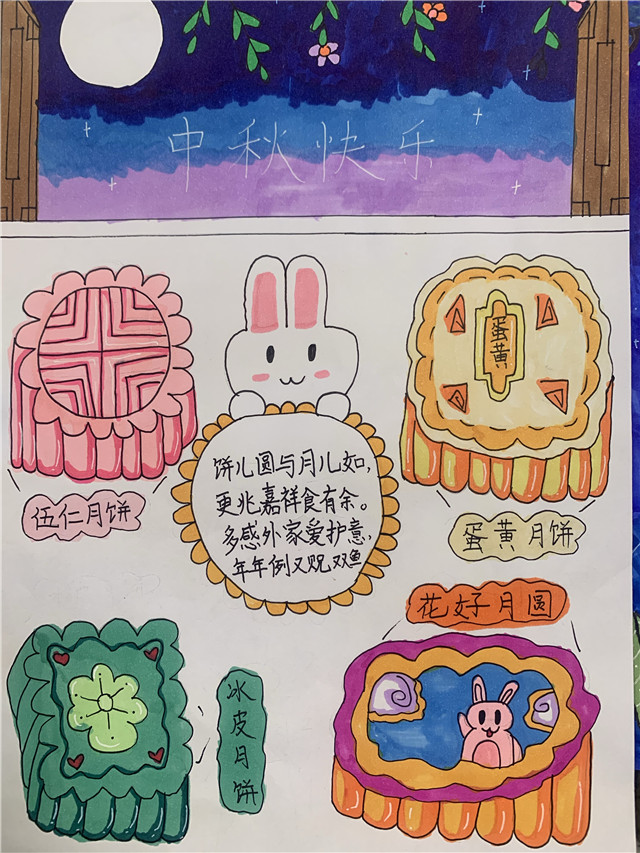 中秋快乐
蛋黄
饼儿圆与月儿如，
更兆嘉祥食有余。
多感外家爱护意，
年年例又贶双鱼
伍仁月饼
蛋黄月饼
花好月圆
冰皮月饼